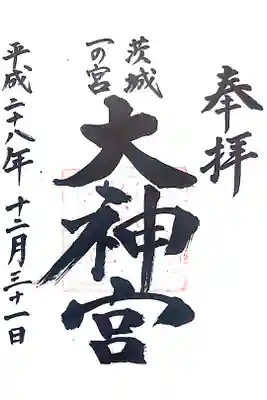 奉拝
茨城
一の宮
大神宮
平成二十八年 十二月三十一日